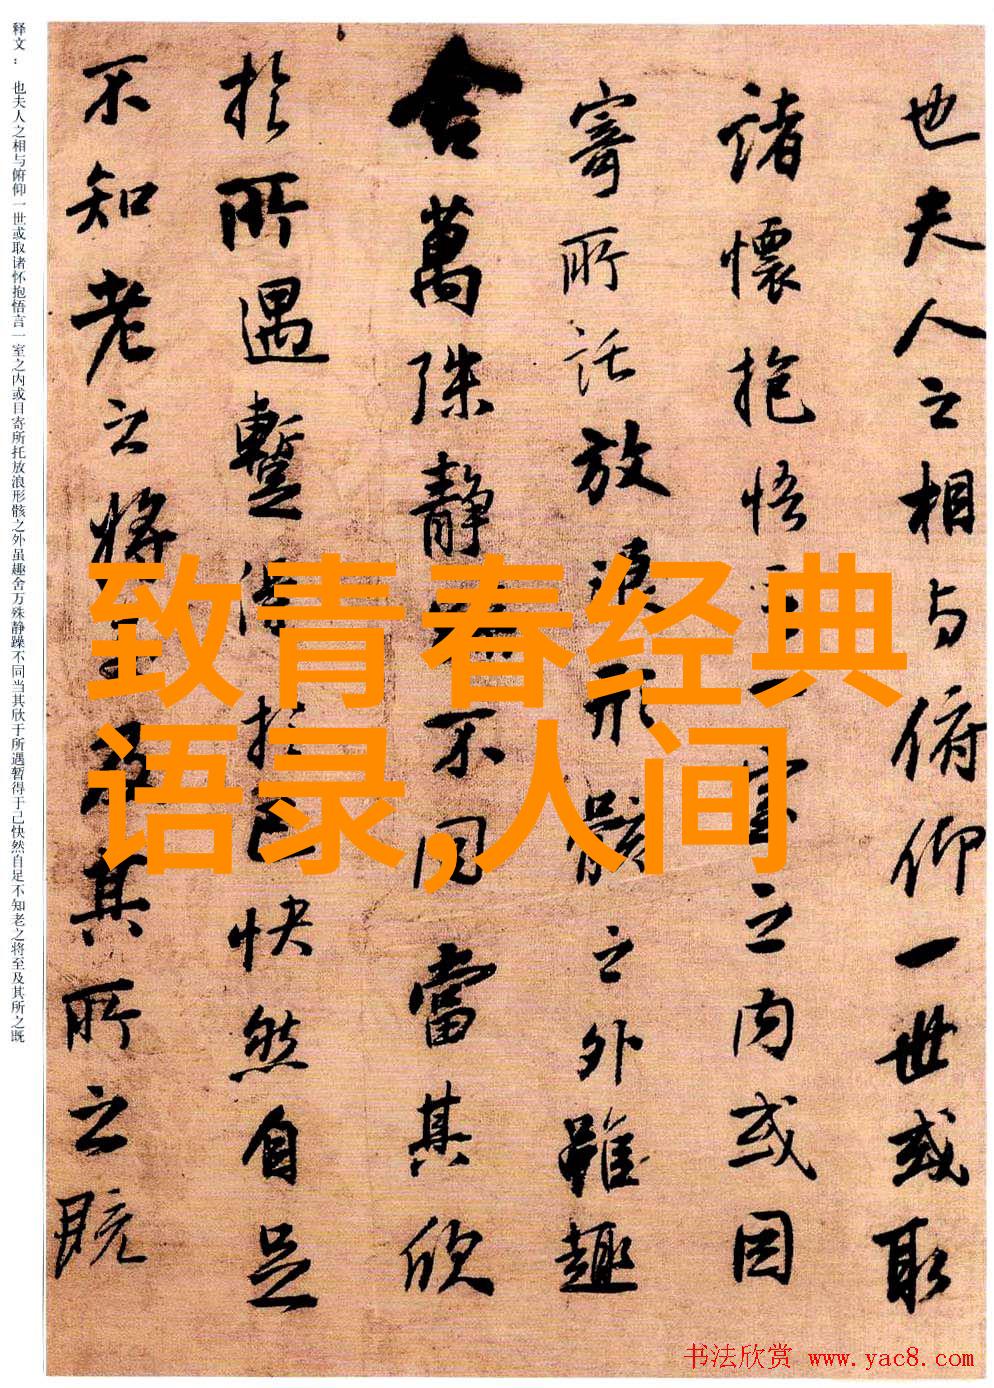 释文：也夫人之相与俯仰一世或取诸怀抱悟言一室之内或目寄所托放浪形骸之外虽趣舍万殊静躁不同当其欣于所遇暂得于己快然自足不知老之将至及其所之既
也夫人之相与俯仰一世或取
諸懷抱悟言一室之内或因
寄所託放浪形骸之外雖趣
舍萬殊静躁不同當其欣
於所遇蹔得於己快然自足
不知老之将至及其所之既
致青春经典
语录,人间
书法欣赏 www.yac8.com